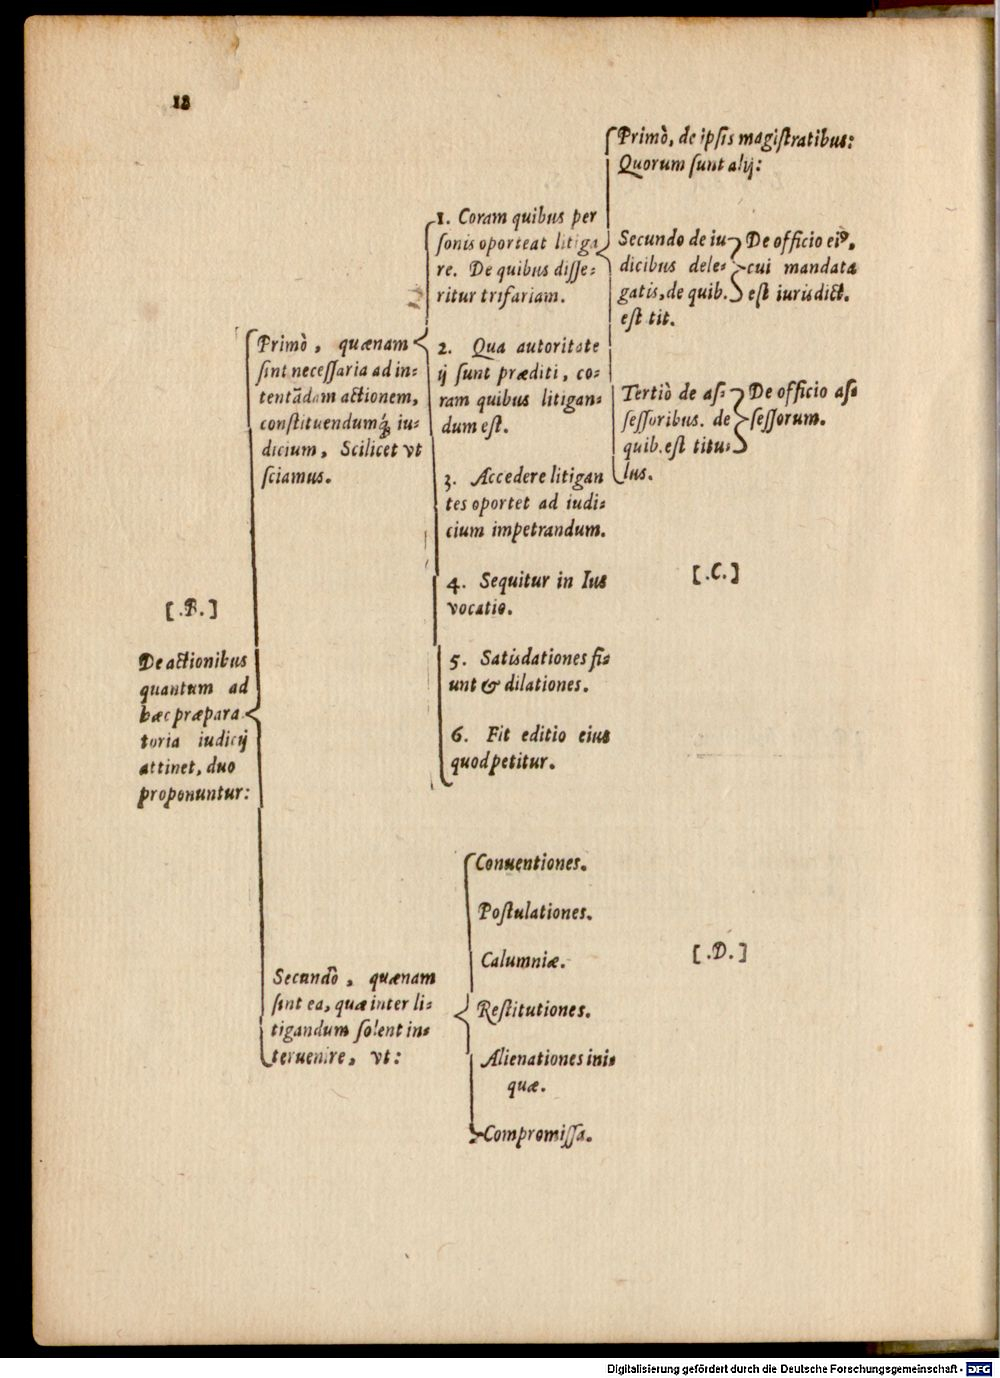 18
[.B.]
De actionibus
quantum ad
hæc præpara
toria iudicij
attinet, duo
proponuntur:
Primò, quænam
ſint neceſſaria ad in-
tentãdam actionem,
conſtituendumq́; iu-
dicium, Scilicet vt
ſciamus.
1. Coram quibus per
ſonis oporteat litiga
re. De quibus diſſe-
ritur trifariam.
Primò, de ipſis magiſtratibus:
Quorum ſunt alij:
Secundo de iu-
dicibus dele-
gatis, de quib.
eſt tit.
De officio eiꝰ,
cui mandata
eſt iurisdict.
Tertiò de aſ-
ſeſſoribus. de
quib. eſt titu-
lus.
De officio aſ-
ſeſſorum.
2. Qua autoritate
ij ſunt præditi, co-
ram quibus litigan-
dum eſt.
3. Accedere litigan
tes oportet ad iudi-
cium impetrandum.
[.C.]
4. Sequitur in Ius
vocatio.
5. Satisdationes fi-
unt & dilationes.
6. Fit editio eius
quod petitur.
Secundò, quænam
ſint ea, quæ inter li-
tigandum ſolent in-
teruenire, vt:
Conuentiones.
Poſtulationes.
Calumniæ.
[.D.]
Reſtitutiones.
Alienationes ini-
quæ.
Compromiſſa.
Digitalisierung gefördert durch die Deutsche Forschungsgemeinschaft - DFG